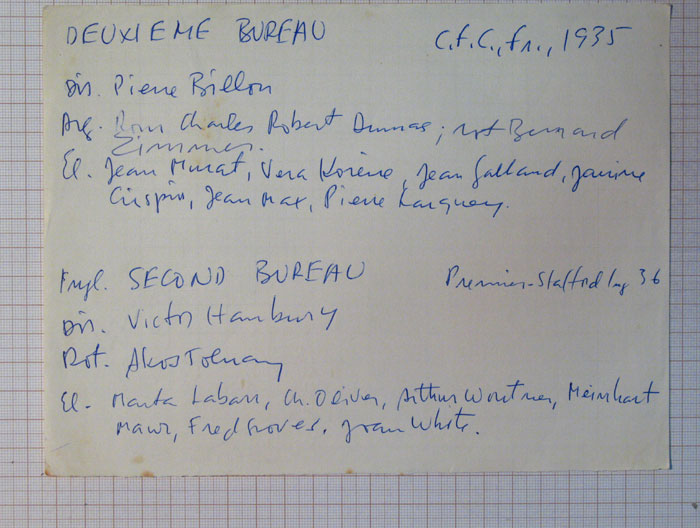 DEUXIEME BUREAU C.F.C., Fr., 1935
Dir. Pierre Billon
Arg. Rom Charles Robert Dumas; rot Bernard
Zimmer.
El. Jean Murat, Vera Korène, Jean Galland, Janine
Crispin, Jean Max, Pierre Larquey.
Engl. SECOND BUREAU Premier-Stafford 36
Dir. Victor Hanbury
Rot. Akos Tolnay
El. Marta Labarr, Ch. Oliver, Arthur Wontner, Meinhart
Maur, Fred Groves, Joan White.